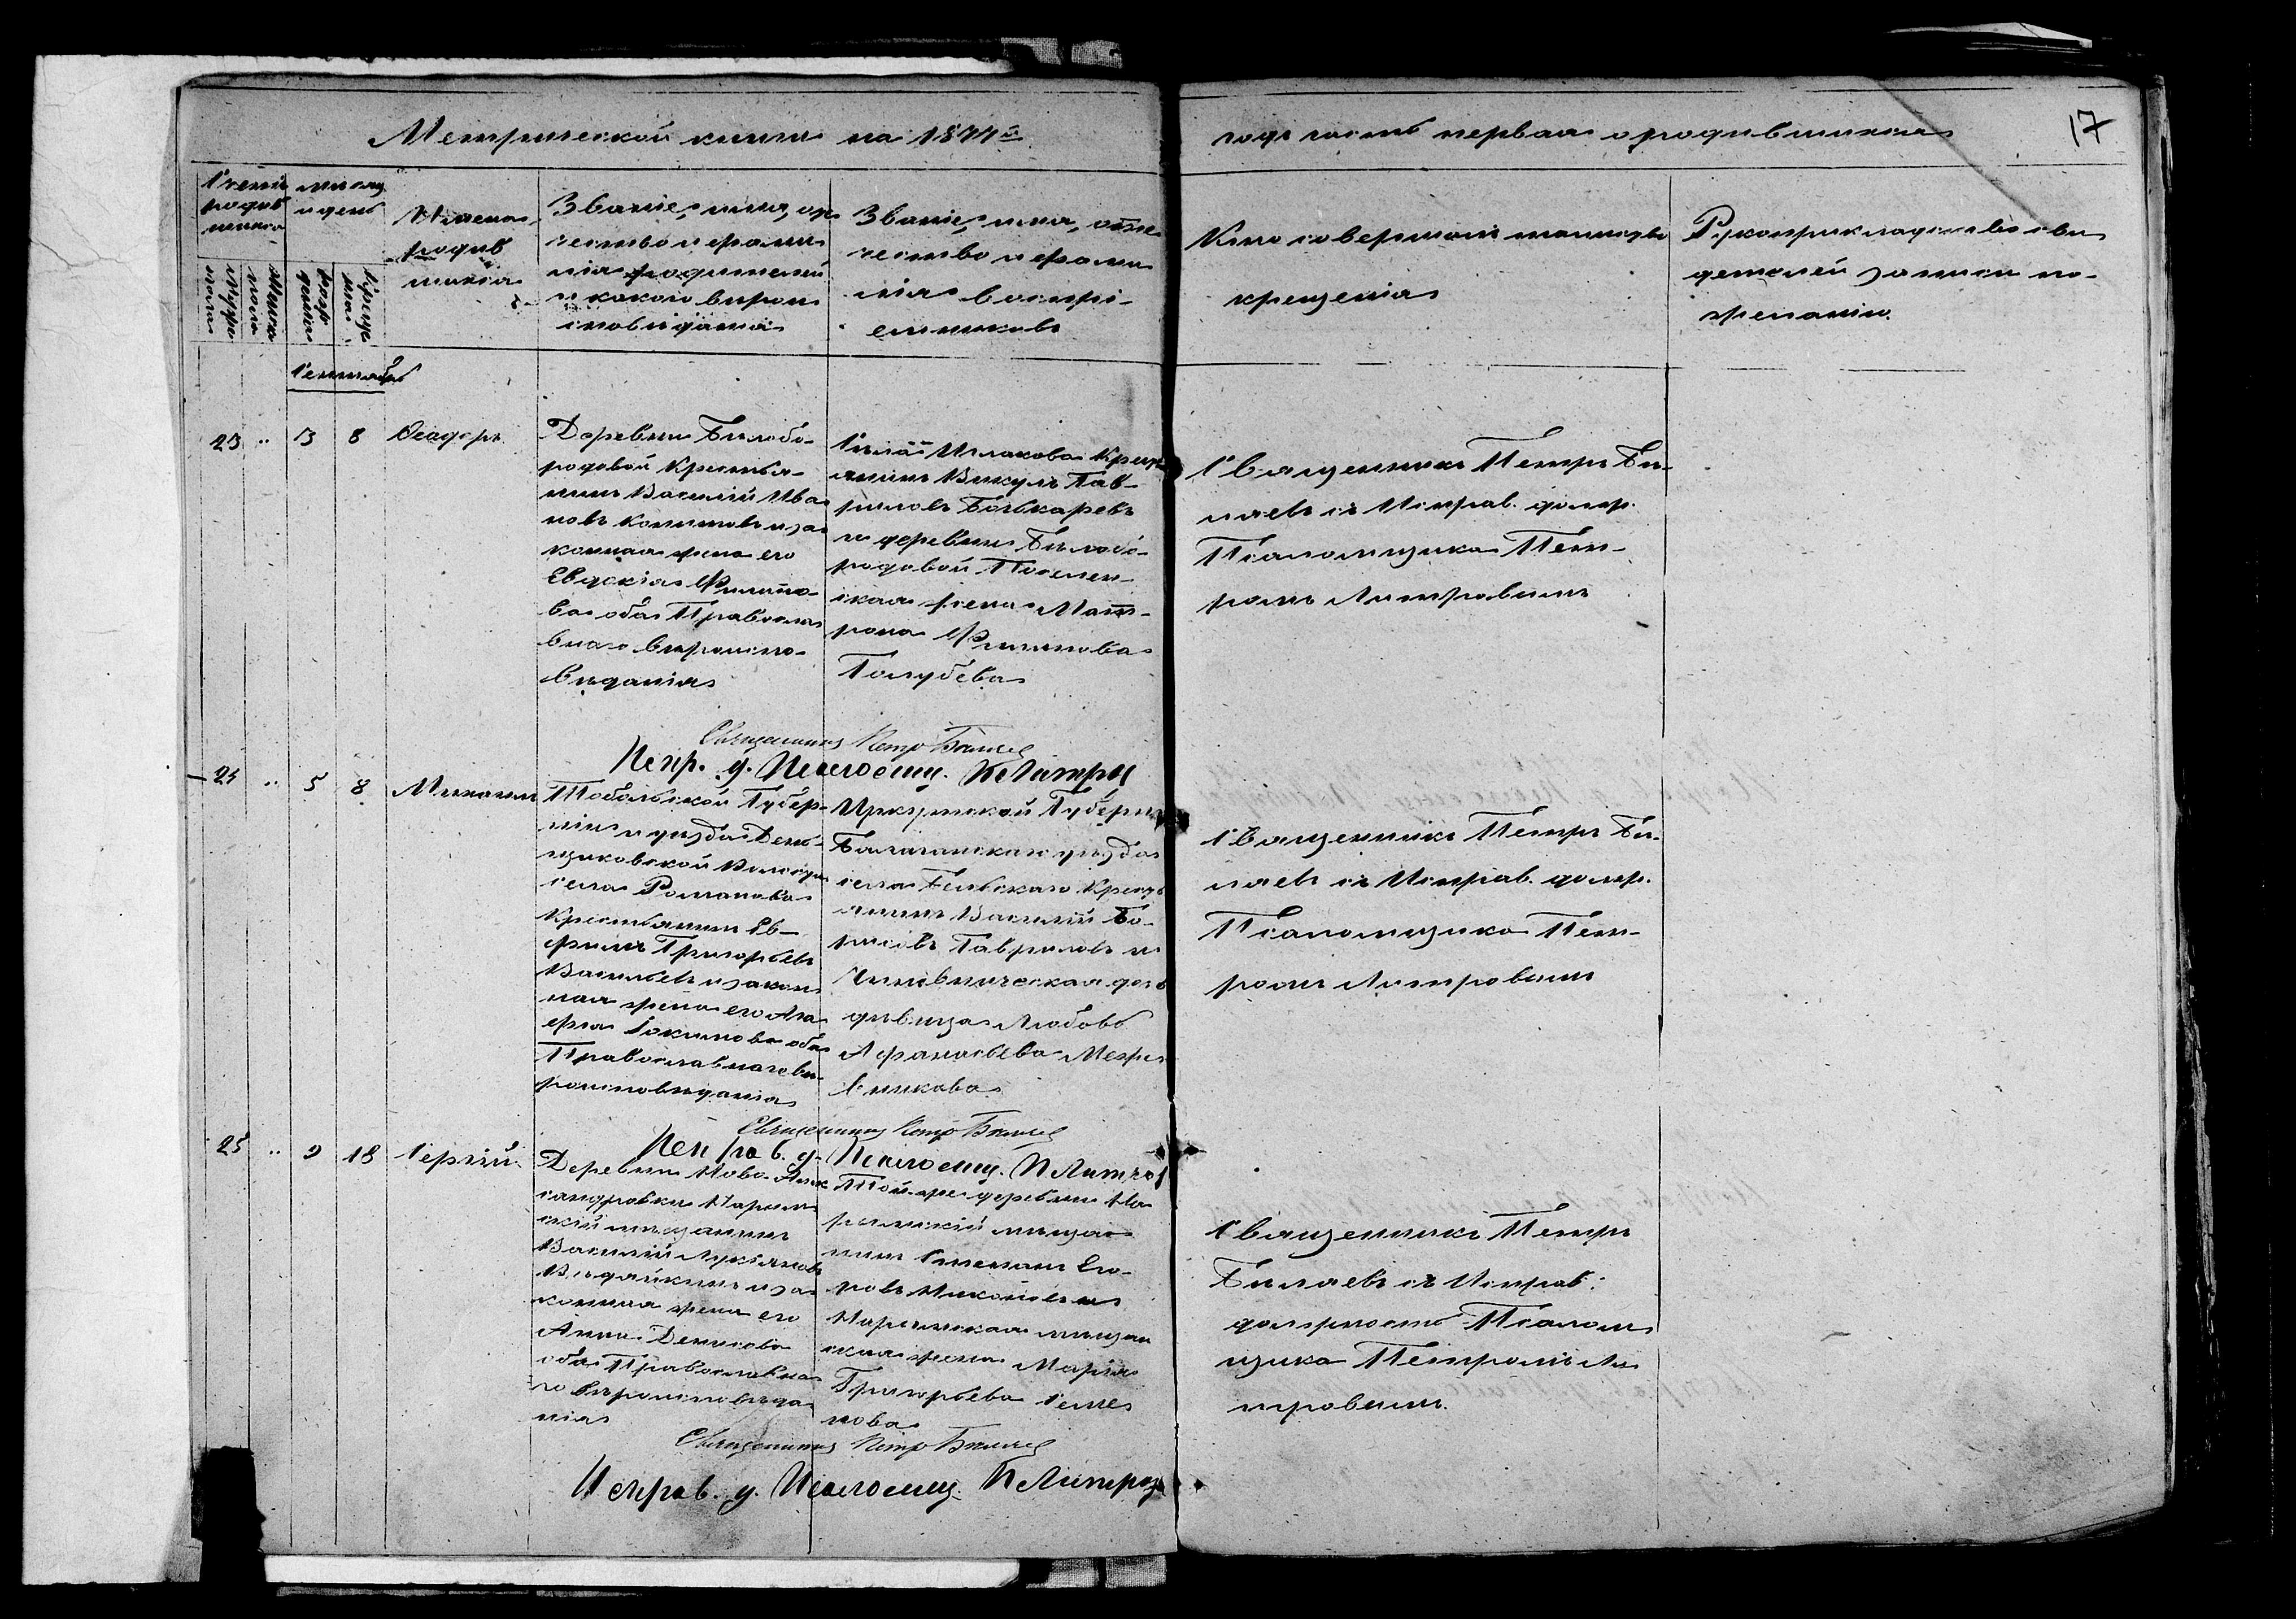 Метрической книги на 1877й
годъ часть первая о родившихся
17
Счетъ родив
шихся
мужеска
пола
женска
пола
Мѣсяц
и день
рож
денія
креще
нія
Имена
родив
шихся
Званіе, имя, от
чество и фами
лія родителей
и какого вѣрои
сповѣданія
Званіе, имя, оте
чество и фами
лія воспрі-
емниковъ
Кто совершалъ таинство
крещенія
Рукоприкладство сви
детелей записи по-
желанію.
Сентябрь
23 .. 3 8 Ѳеодоръ
Деревни Бѣлобо-
родовой Крестья-
нинъ Василій Ива
новъ и за
конная жена его
Евдокія Филипо-
ва оба Православ
наго вероиспо-
вѣданія
Села Ишлакова Крест
янинъ Викулъ Гав-
риловъ Бочкаревъ
и деревни Бѣлобо-
родовой Поселен-
ская жена Мат-
рона Филипова
Голубева
Священникъ Петръ Бѣ-
ляевъ съ Исправ. долж.
Псаломщика Пет-
ромъ Литровымъ
Священникъ Петръ Бѣляев
Испр. д. Псаломщ. П Литров
24 .. 5 8 Михаилъ
Тобольской Губер-
ніи и уѣзда День-
щиковской Волости
села Романова
Крестьянинъ Ев-
фимъ Григорьевъ
Васильевъ и закон
ная жена его Ага
фія оба
Православнаго вѣ-
роисповѣданія
Иркутской Губерніи
Балаганскаго уѣзда
села Бельскаго Крест
янинъ Василій Бо-
рисовъ Гавриловъ и
Чиновническая дочь
дѣвица Любовь
Афанасьева Мерз
Священникъ Петръ Бѣ-
ляевъ съ Исправ. долж.
Псаломщика Пет-
ромъ Литровымъ
Священникъ Петръ Бѣляев
Исправ. д. Псаломщ. П Литров
25 .. 9 18 Сергій
Деревни Ново-Алек
сандровки Нарым
скій мѣщанинъ
Василій Лукьяновъ
и за
конная жена его
Анна Денисова
оба Православна
го вѣроисповѣда
нія
Той-же деревни На
рымскій мѣща
нинъ Степанъ Его-
ровъ и
Нарымская мѣщан
ская жена Марія
Григорьева Семе
нова
Священникъ Петръ
Бѣляевъ съ Исправ:
должность Псалом
щика Петромъ Ли
тровымъ.
Священникъ Петръ Бѣляев
Исправ. д. Псаломщ. П Литров